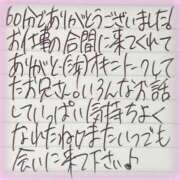 60分でありがとうございました!
お仕事の合間に来てくれて
ありがとう(笑)オキニトークして
たお兄さん。いろんなお話
していっぱい気持ちよく
なれたねまたいつでも
会いに来て下さい♪